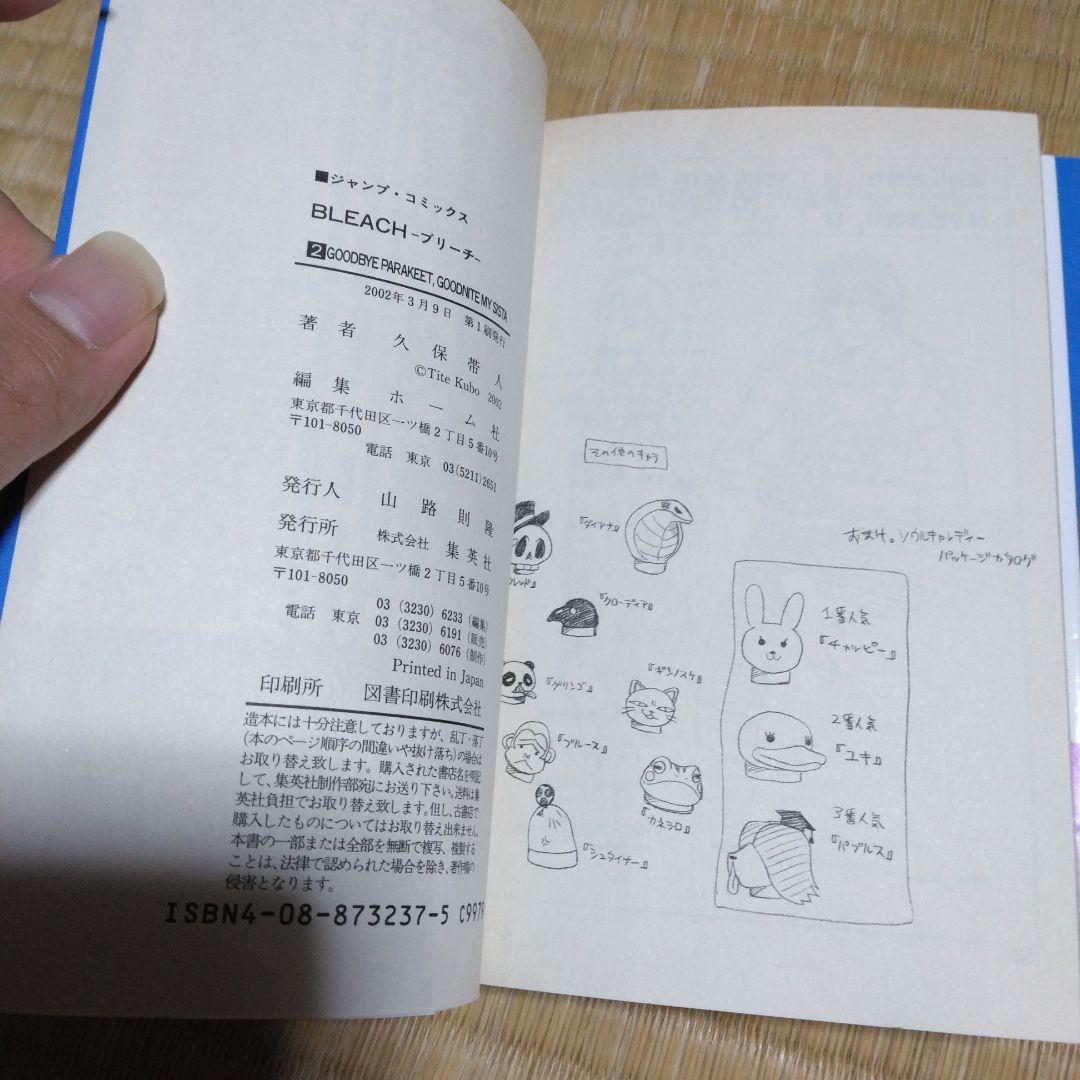 ■ジャンプ・コミックス
BLEACH-ブリーチ-
2 GOODBYE PARAKEET, GOODNITE MY SISTA
2002年3月9日 第1刷発行
著者 久保帯人
©Tite Kubo 2002
編集 ホーム社
東京都千代田区一ツ橋2丁目5番10号
〒101-8050
電話 東京 03(5211)2651
発行人 山路則隆
発行所 株式会社 集英社
東京都千代田区一ツ橋2丁目5番10号
〒101-8050
03(3230)6233(編集)
電話 東京 03(3230)6191(販売)
03(3230)6076(制作)
Printed in Japan
印刷所 図書印刷株式会社
造本には十分注意しておりますが、乱丁・落丁
(本のページ順序の間違いや抜け落ち)の場合は
お取り替え致します。購入された書店名を明記
して、集英社制作部宛にお送り下さい。送料は集
英社負担でお取り替え致します。但し、古書店で
購入したものについてはお取り替え出来ません。
本書の一部または全部を無断で複写、複製する
ことは、法律で認められた場合を除き、著作権の
侵害となります。
ISBN4-08-873237-5 C9979
その他のキャラ
『ダイアナ』
レッド』
『クローディア』
『グリンゴ』
『ギンノスケ』
『ブルース』
『カネシロ』
『シュタイナー』
おまけ。ソウルキャンディー
パッケージカタログ
1番人気
『チャッピー』
2番人気
『ユキ』
3番人気
『パプルス』